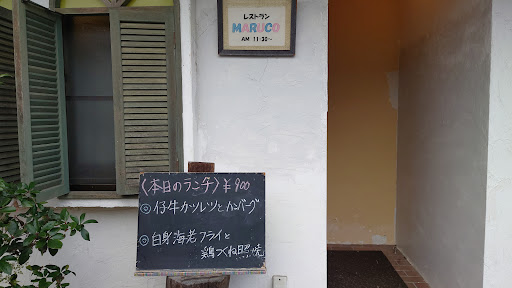 レストラン
MARUCO
AM 11:30〜
〈本日のランチ〉¥900
◎仔牛カツレツとハンバーグ
◎白身海老フライと
鶏つくね照焼